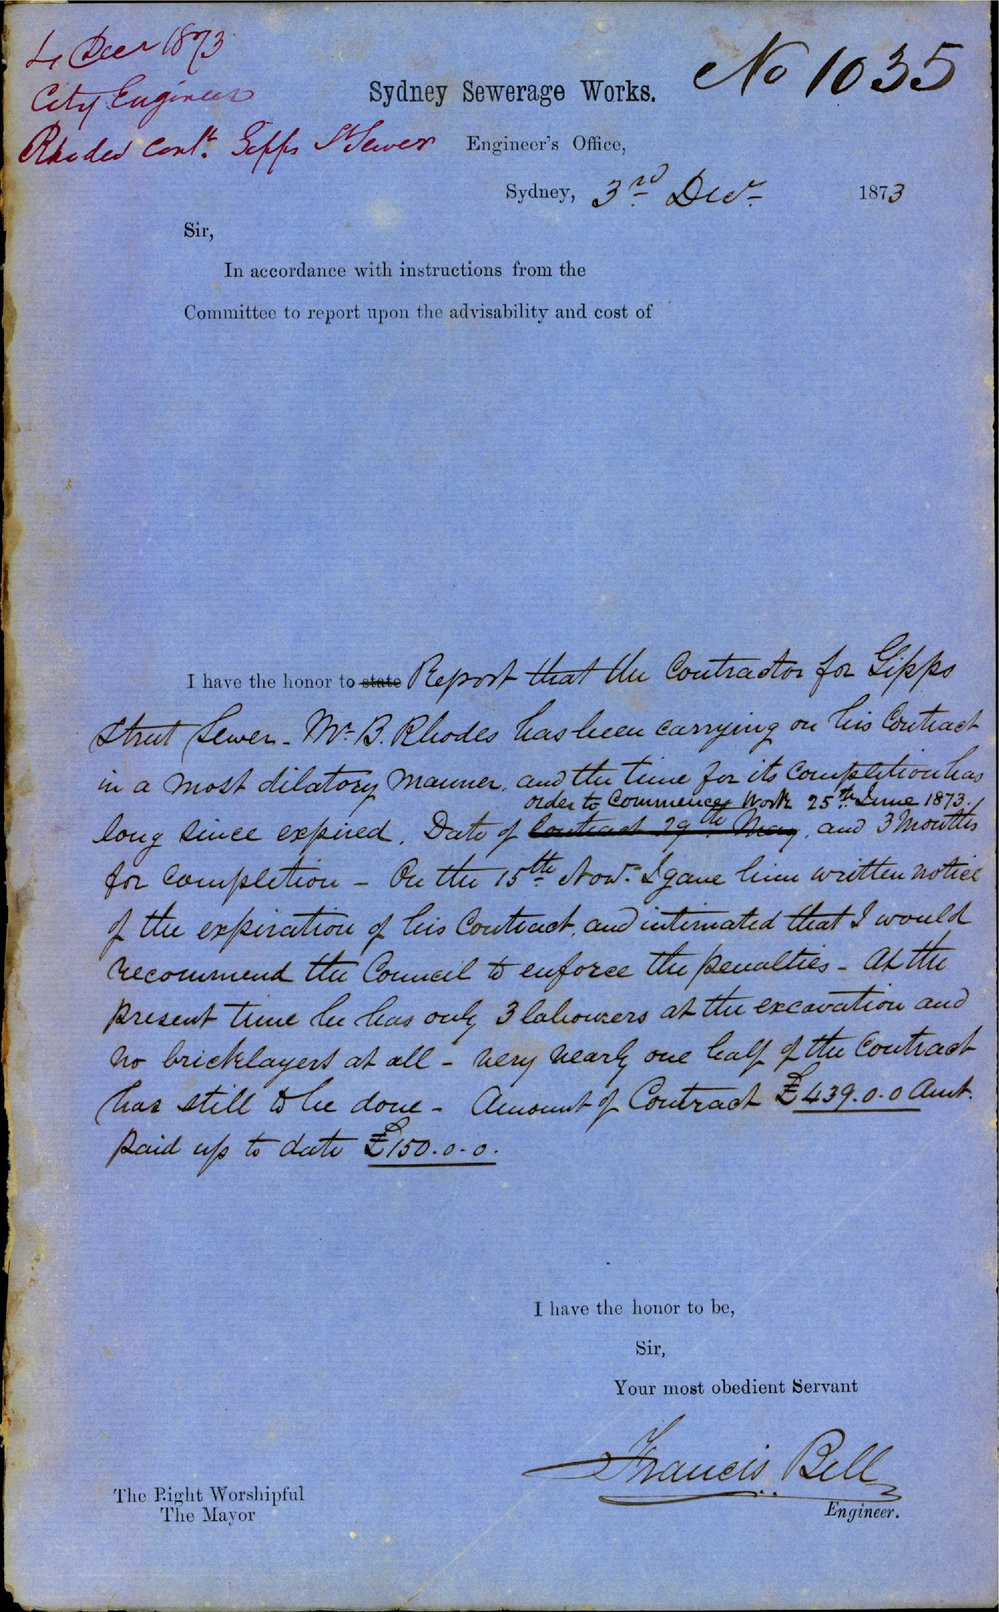 4 Decr 1873
City Engineer
Rhodes Cont. Gipps St Sewer
No 1035
Sydney Sewerage Works.
Engineer's Office,
Sydney, 3rd Decr 1873
Sir,
In accordance with instructions from the
Committee to report upon the advisability and cost of
I have the honor to state Report that the Contractor for Gipps
Street Sewer - Mr. B. Rhodes has been carrying on his Contract
in a most dilatory manner, and the time for its completion has
order to Commence Work 25th June 1873.
long since expired. Date of Contract 29th May, and 3 Months
for completion - On the 15th Novr. I gave him written notice
of the expiration of his Contract, and intimated that I would
recommend the Council to enforce the penalties - At the
present time he has only 3 labourers at the excavation and
no bricklayers at all - very nearly one half of the Contract
has still to be done - Amount of Contract £439.0.0 Amt.
paid up to date £150.0.0.
I have the honor to be,
Sir,
Your most obedient Servant
Francis Bell
Engineer.
The Right Worshipful
The Mayor